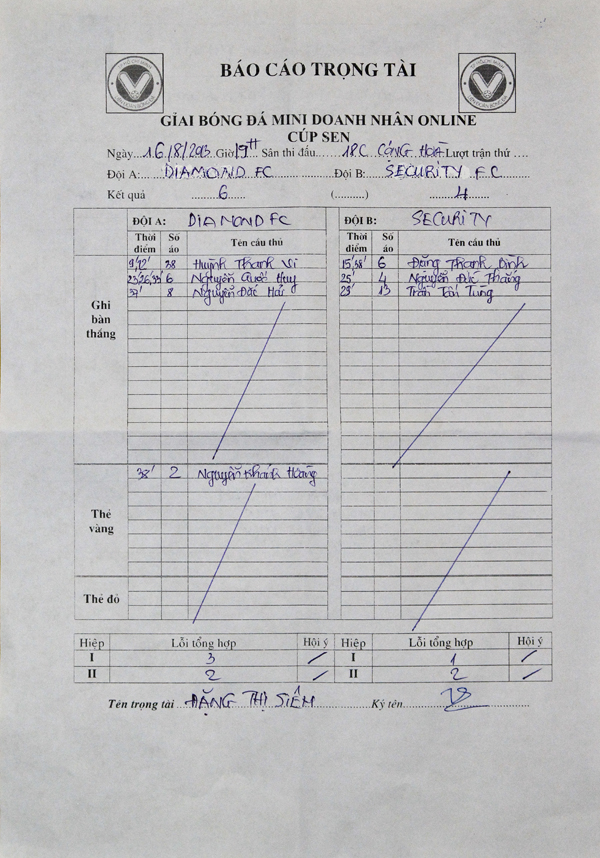 BÁO CÁO TRỌNG TÀI
GIẢI BÓNG ĐÁ MINI DOANH NHÂN ONLINE
CÚP SEN
Ngày 16/8/2013 Giờ 19H Sân thi đấu 18C CỘNG HOÀ Lượt trận thứ
Đội A: DIAMOND FC Đội B: SECURITY FC
Kết quả 6 (..........) 4
ĐỘI A: DIAMOND FC ĐỘI B: SECURITY
Thời điểm Số áo Tên cầu thủ Thời điểm Số áo Tên cầu thủ
Ghi bàn thắng
9',12' 38 Huỳnh Thanh Vi 15',38' 6 Đặng Thanh Bình
23',26',35' 6 Nguyễn Quốc Huy 25' 4 Nguyễn Đức Thắng
37' 8 Nguyễn Đắc Hải 28' 13 Trần Tấn Tùng
Thẻ vàng
38' 2 Nguyễn Khánh Hoàng
Thẻ đỏ
Hiệp Lỗi tổng hợp Hội ý Hiệp Lỗi tổng hợp Hội ý
I 3 / I 1 /
II 2 / II 2 /
Tên trọng tài ĐẶNG THỊ SIÊM Ký tên